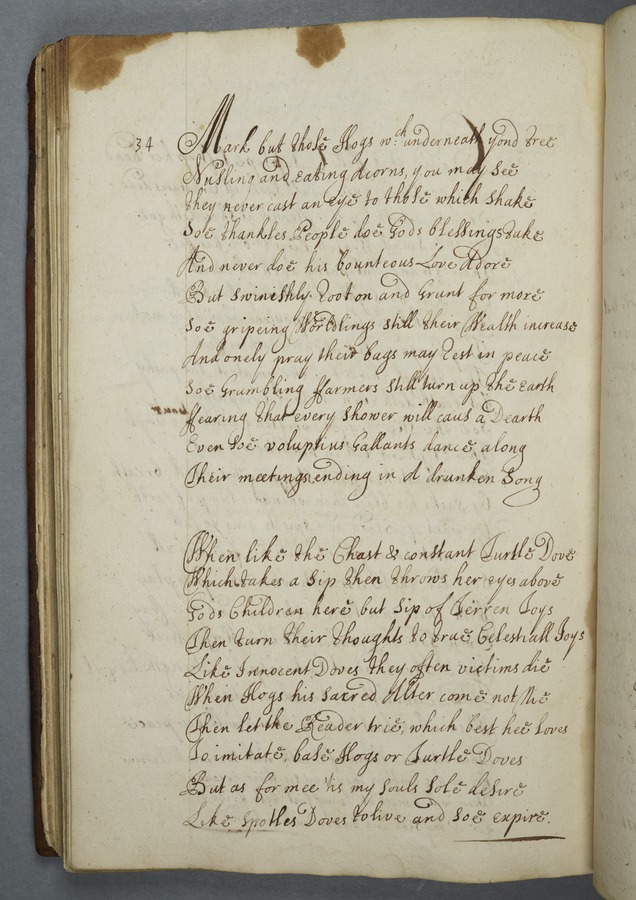 34 Mark but those Hogs wch: underneath yond tree
Nusling and eating Acorns, you may see
they never cast an eye to those which shake
Soe thankles People doe Gods blessings take
And never doe his bounteous Love Adore
But swinishly root on and Grunt for more
Soe gripeing Worldlings still their Wealth increase
And onely pray their bags may rest in peace
Soe Grumbling ffarmers still turn up the earth
ffearing that every shower will caus a Dearth
Even soe voluptius Gallants dance along
Their meetings ending in A drunken Song
When like the Chast & constant Turtle Dove
Which takes a sip then throws her eyes above
Gods Children here but sip of Terren Joys
Then turn their thoughts to true Celestiall Joys
Like Innocent Doves they often victims die
When Hogs his Sacred Alter come not Nie
Then let the Reader trie, which best hee loves
To imitate, base Hogs or Turtle Doves
But as for mee 'tis my souls sole desire
Like spotles Doves to live and soe expire.